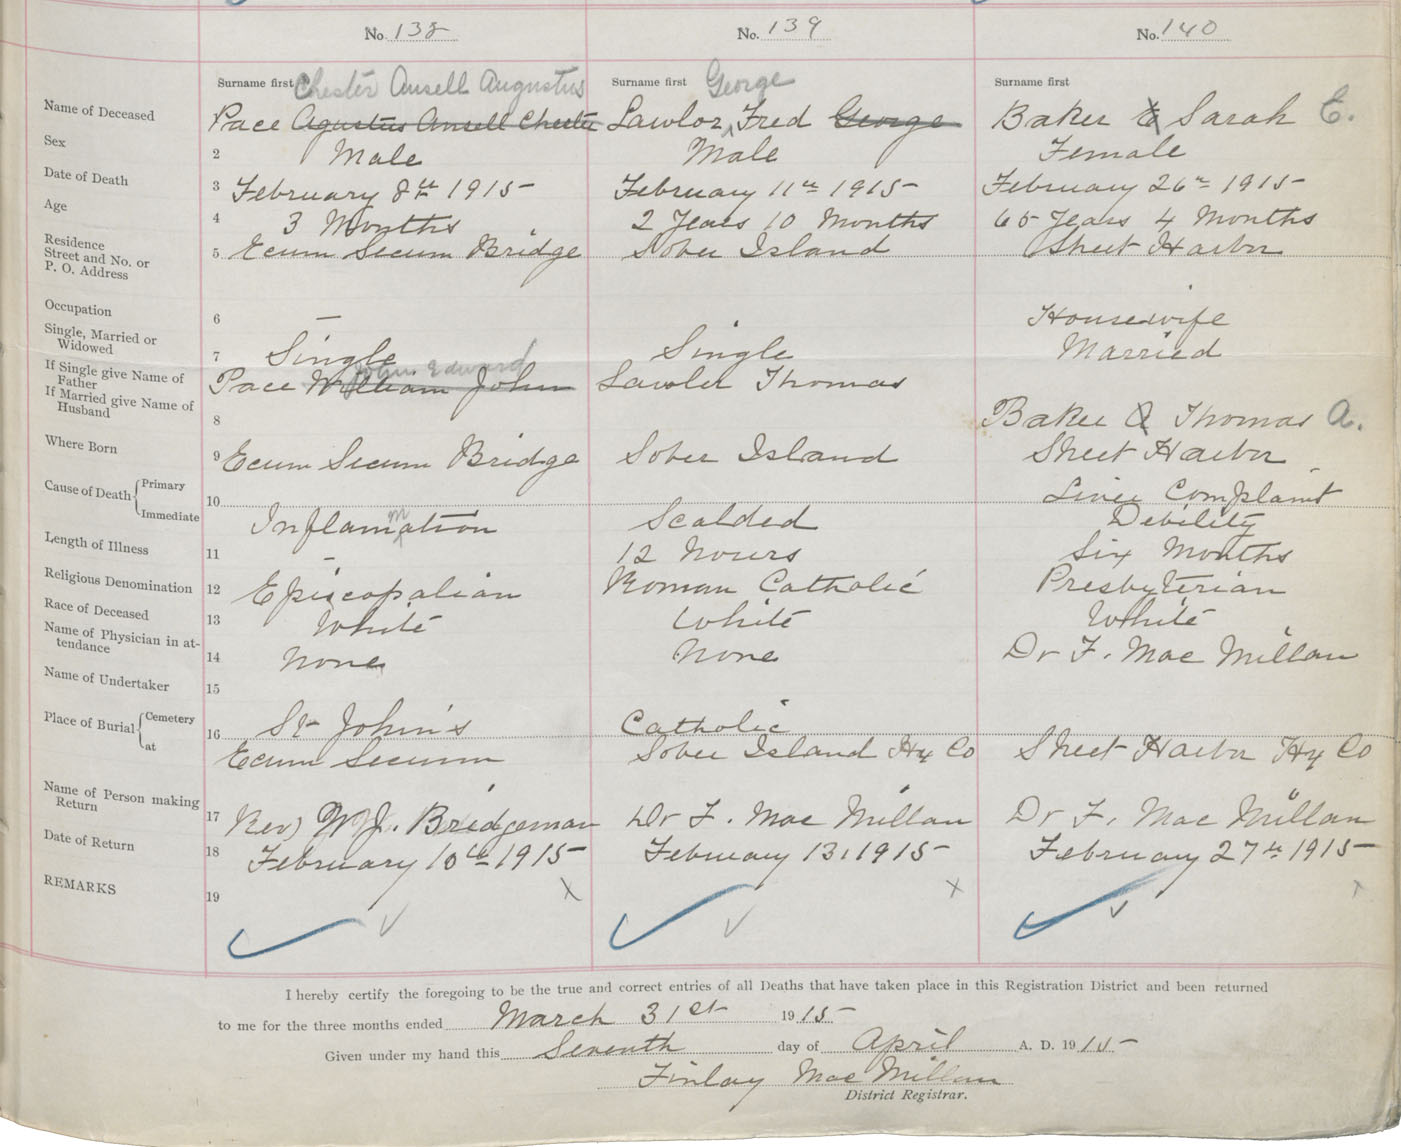 No. 138 No. 139 No. 140
Surname first Chester Ansell Augustus Surname first George Surname first
Name of Deceased Pace Agustus Ansell Chester Lawlor, Fred George Baker E Sarah E.
Sex 2 Male Male Female
Date of Death 3 February 8th 1915 February 11th 1915 February 26th 1915
Age 4 3 Months 2 Years 10 Months 65 Years 4 Months
Residence
Street and No. or
P. O. Address 5 Ecum Secum Bridge Sober Island Sheet Harbor
Occupation 6 — Housewife
Single, Married or
Widowed 7 Single Single Married
John Edward
If Single give Name of
Father Pace William John Lawler Thomas
If Married give Name of
Husband 8 Baker A Thomas A.
Where Born 9 Ecum Secum Bridge Sober Island Sheet Harbor
Cause of Death Primary 10 Liver Complaint
Immediate Inflammation Scalded Debility
Length of Illness 11 — 12 hours Six Months
Religious Denomination 12 Episcopalian Roman Catholic Presbyterian
Race of Deceased 13 White White White
Name of Physician in at-
tendance 14 None None Dr F. Mac Millan
Name of Undertaker 15
Place of Burial Cemetery 16 St John's Catholic
at Ecum Secum Sober Island Hx Co Sheet Harbor Hx Co
Name of Person making
Return 17 Rev) W J. Bridgeman Dr F. Mac Millan Dr F. Mac Millan
Date of Return 18 February 10th 1915 February 13, 1915 February 27th 1915
REMARKS 19
I hereby certify the foregoing to be the true and correct entries of all Deaths that have taken place in this Registration District and been returned
to me for the three months ended March 31st 1915
Given under my hand this Seventh day of April A. D. 1915
Finlay Mac Millan
District Registrar.